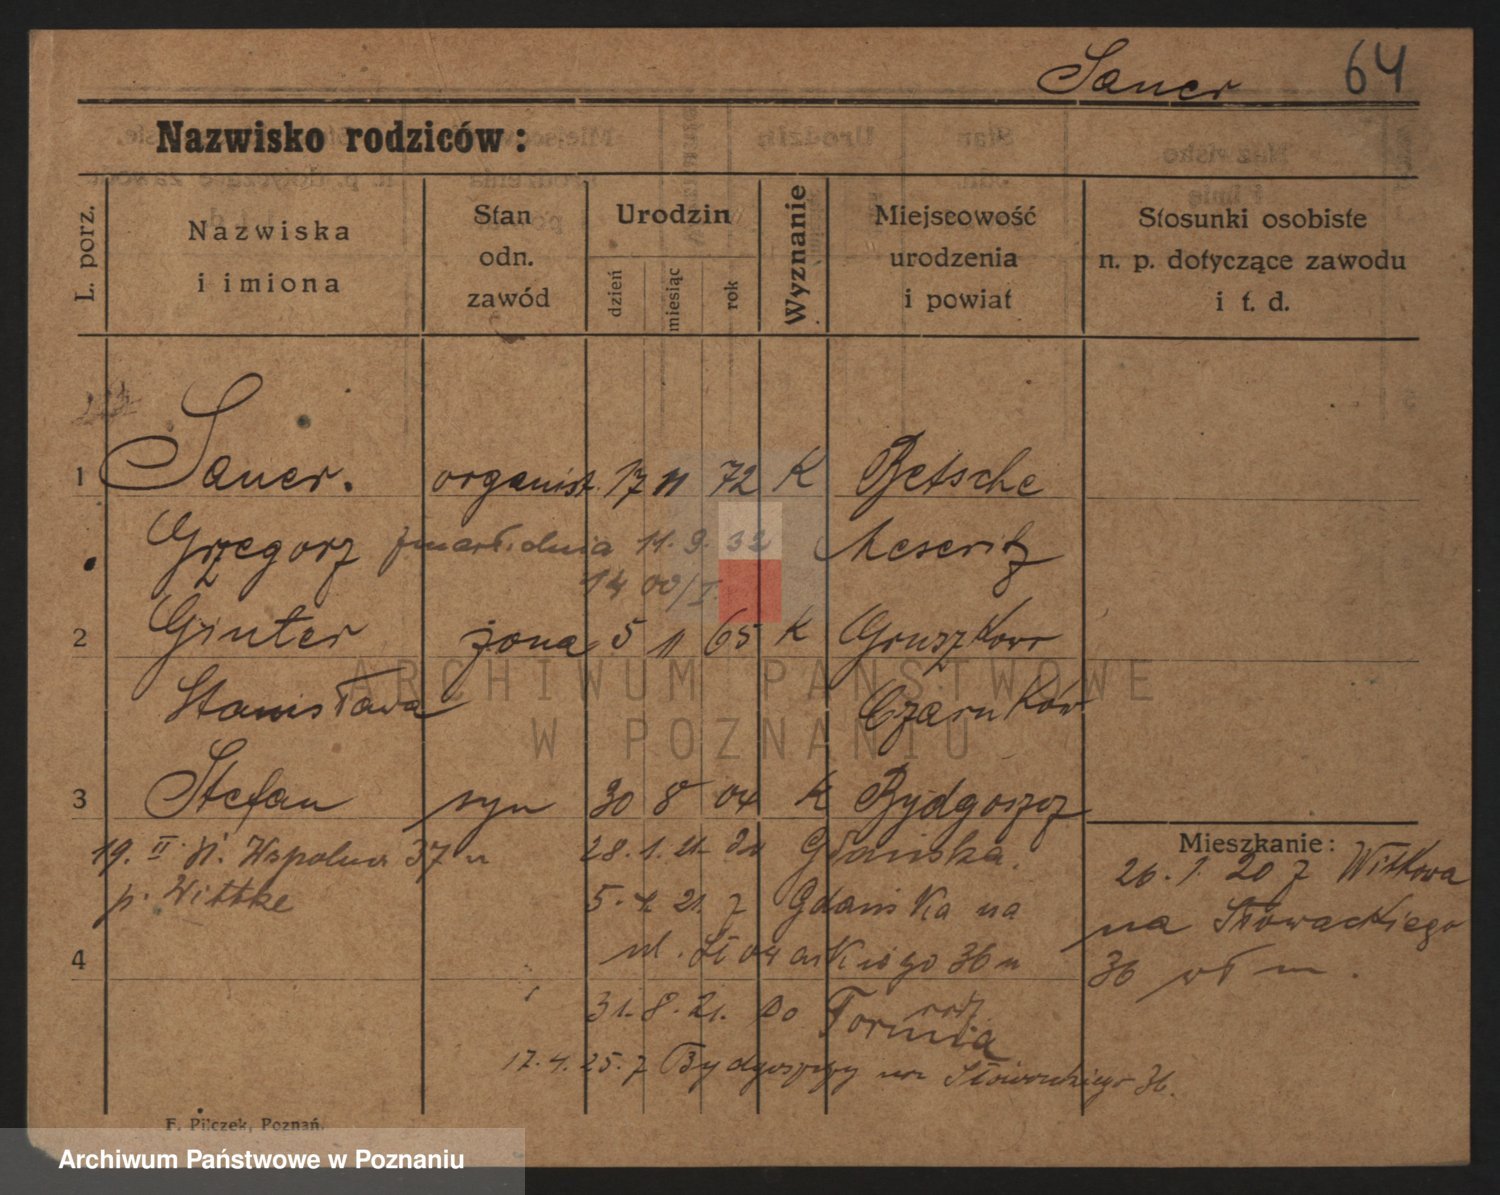 Sauer 64
Nazwisko rodziców:
L. porz.
Nazwiska
i imiona
Stan
odn.
zawód
Urodzin
dzień
miesiąc
rok
Wyznanie
Miejscowość
urodzenia
i powiat
Stosunki osobiste
n. p. dotyczące zawodu
i t. d.
1 Sauer. organist. 17 11 72 K Betsche
Grzegorz zmarł dnia 11.9.32 Meseritz
14 00/I.
2 Ginter żona 5 11 65 K Gruszkowo
Stanisława Czarnków
3 Stefan syn 30 8 04 K Bydgoszcz
Mieszkanie:
19. II Wspólna 37 28.1.21. Gdańska.
26.1.20 z Witkowa
p. Wittke 5.4.21. z Gdańska na
na Słowackiego
4 ul. Słowackiego 36
36
31.8.21. do Torunia
17.4.25. z Bydgoszczy na Słowackiego 36.
F. Pilczek, Poznań.
ARCHIWUM PAŃSTWOWE
W POZNANIU
Archiwum Państwowe w Poznaniu